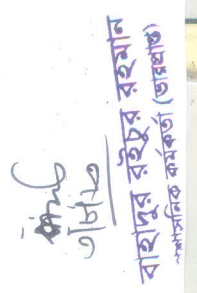 বাহাদুর রইচুর রহমান
প্রশাসনিক কর্মকর্তা (ভারপ্রাপ্ত)